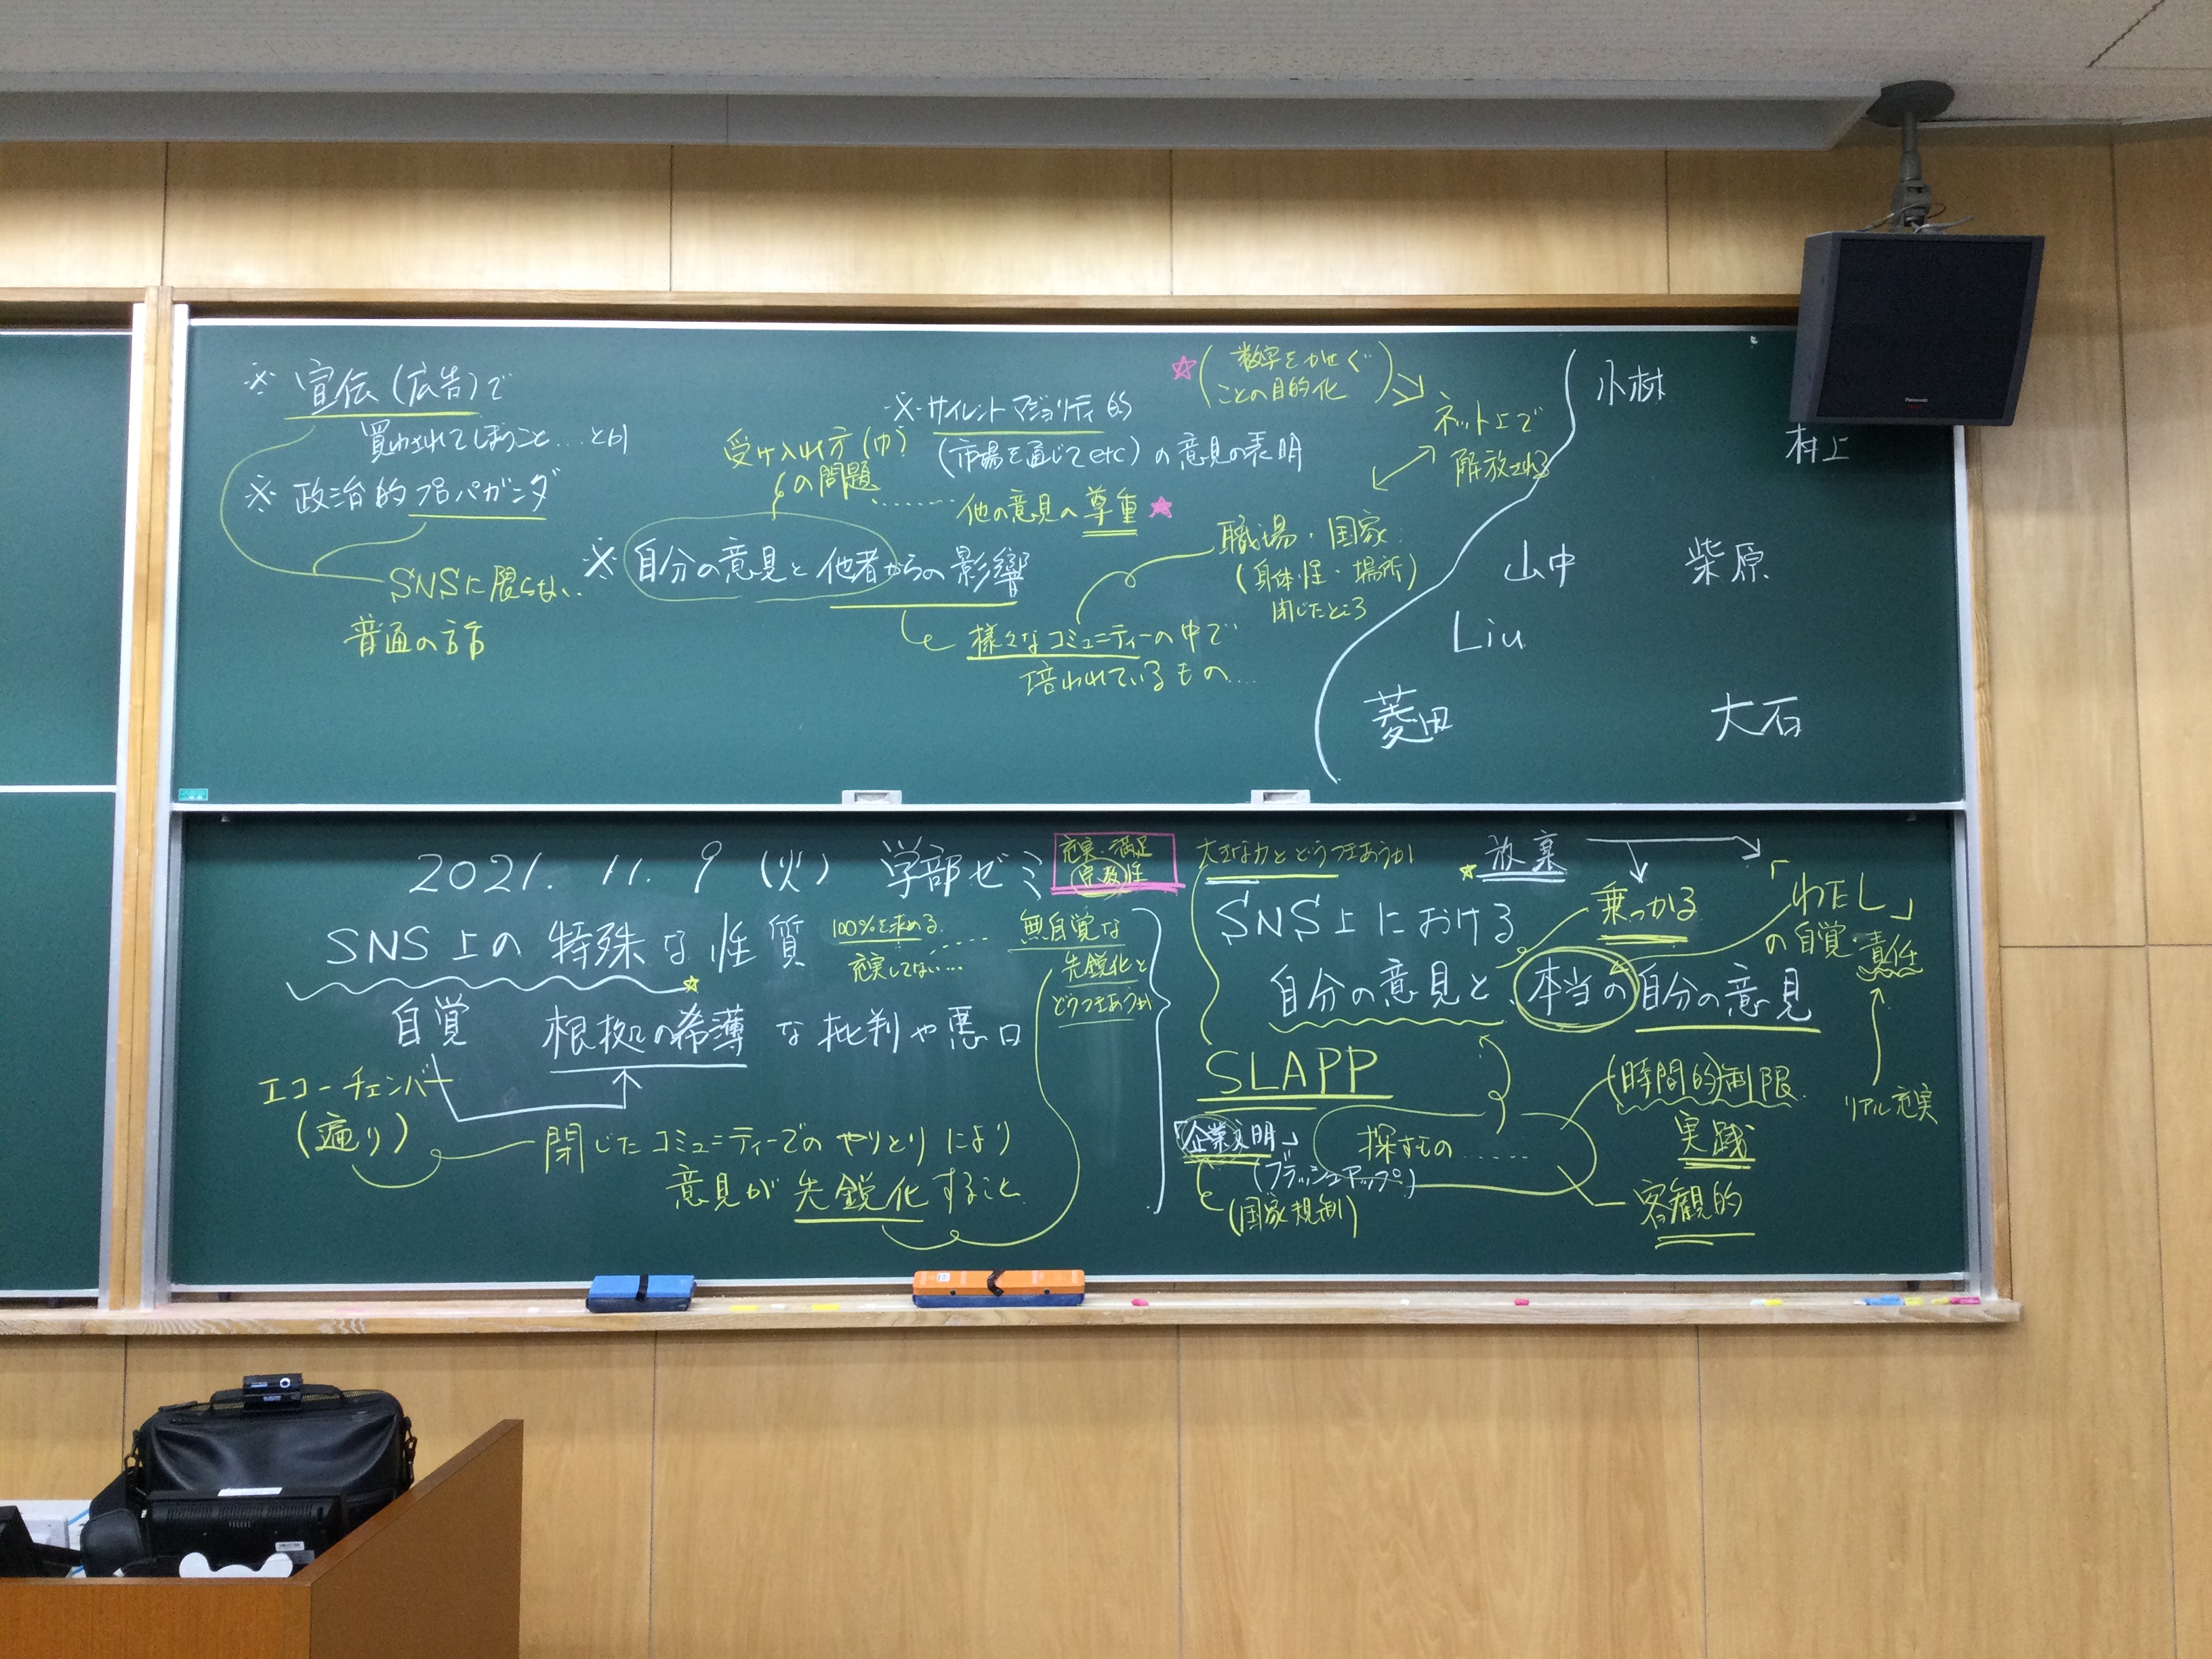 ※ 宣伝(広告)で
買わされてしまうこと…とか
※ 政治的プロパガンダ
SNSに限らない.
普通の話
受け入れ方(巾?)
の問題
※ サイレントマジョリティ的
(市場を通じてetc)の意見の表明
他の意見へ尊重
※ 自分の意見と他者からの影響
様々なコミュニティーの中で
培われているもの…
(数字をかせぐ
ことの目的化)
ネット上で
解放される
職場・国家
(身体性・場所)
閉じたところ
小林
村上
山中 柴原
Liu
菱田 大石
2021. 11. 9 (火) 学部ゼミ
充実・満足
(宗教)性
SNS上の特殊な性質
100%を求める.
充実してない…
無自覚な
先鋭化と
どうつきあうか
自覚 根拠の希薄な批判や悪口
エコーチェンバー
(遍り)
閉じたコミュニティーでのやりとりにより
意見が先鋭化すること
大きな力とどうつきあうか
放棄
乗っかる
「わたし」
の自覚・責任
リアル充実
SNS上における
自分の意見と 本当の自分の意見
SLAPP
「企業文明」
(ブラッシュアップ)
(国家規制)
探すもの……
(時間的)制限
実践
客観的
Panasonic